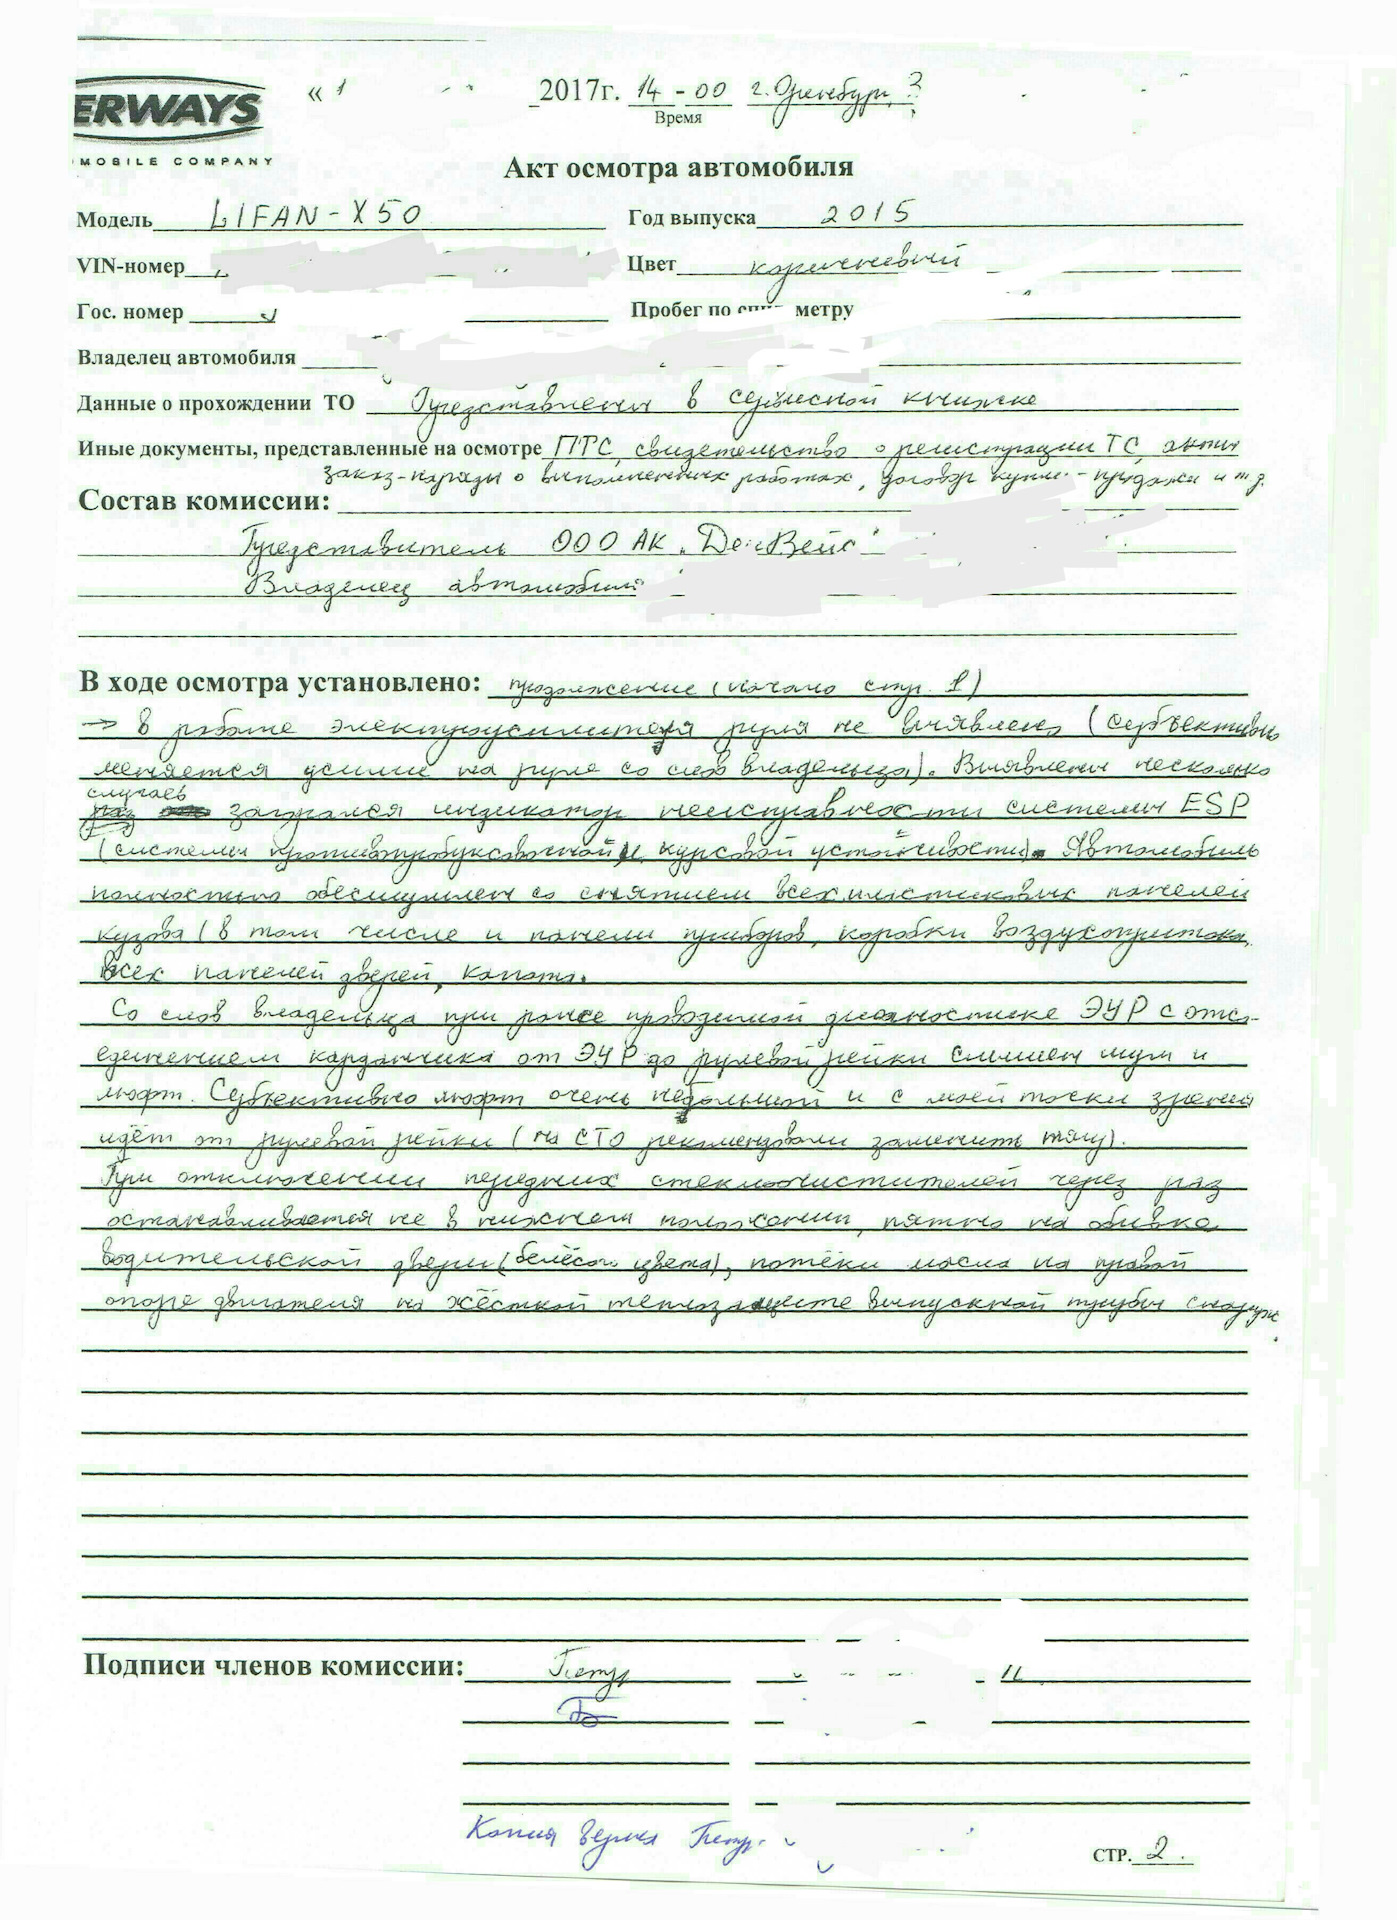 ERWAYS
MOBILE COMPANY
« 2017г. 14-00 г. Оренбург
Время
Акт осмотра автомобиля
Модель LIFAN-X50 Год выпуска 2015
VIN-номер Цвет коричневый
Гос. номер Пробег по метру
Владелец автомобиля
Данные о прохождении ТО Представлены в сервисной книжке
Иные документы, представленные на осмотре ПТС, свидетельство о регистрации ТС, акты
заказ-наряды о выполненных работах, договор купли-продажи и т.д.
Состав комиссии:
Представитель ООО АК „ДенВейс"
Владелец автомобиля
В ходе осмотра установлено: продолжение (начало стр. 1)
→ в работе электроусилителя руля не выявлено (субъективно
меняется усилие на руле со слов владельца). Выявлены несколько
случаев
раз загорался индикатор неисправности системы ESP
(системы противопробуксовочной и курсовой устойчивости). Автомобиль
полностью обесшумлен со снятием всех пластиковых панелей
кузова (в том числе и панели приборов, коробки воздухопритока,
всех панелей дверей, капота.
Со слов владельца при ранее проводимой диагностике ЭУР с отсо-
единением карданчика от ЭУР до рулевой рейки слышен шум и
люфт. Субъективно люфт очень небольшой и с моей точки зрения
идёт от рулевой рейки (на СТО рекомендовали заменить тягу).
При отключении передних стеклоочистителей через раз
останавливается не в нижнем положении, пятно на обивке
водительской двери (белёсого цвета), потёки масла на правой
опоре двигателя на жёсткой теплозащите выпускной трубы снаружи.
Подписи членов комиссии:
Копия верна
СТР. 2.